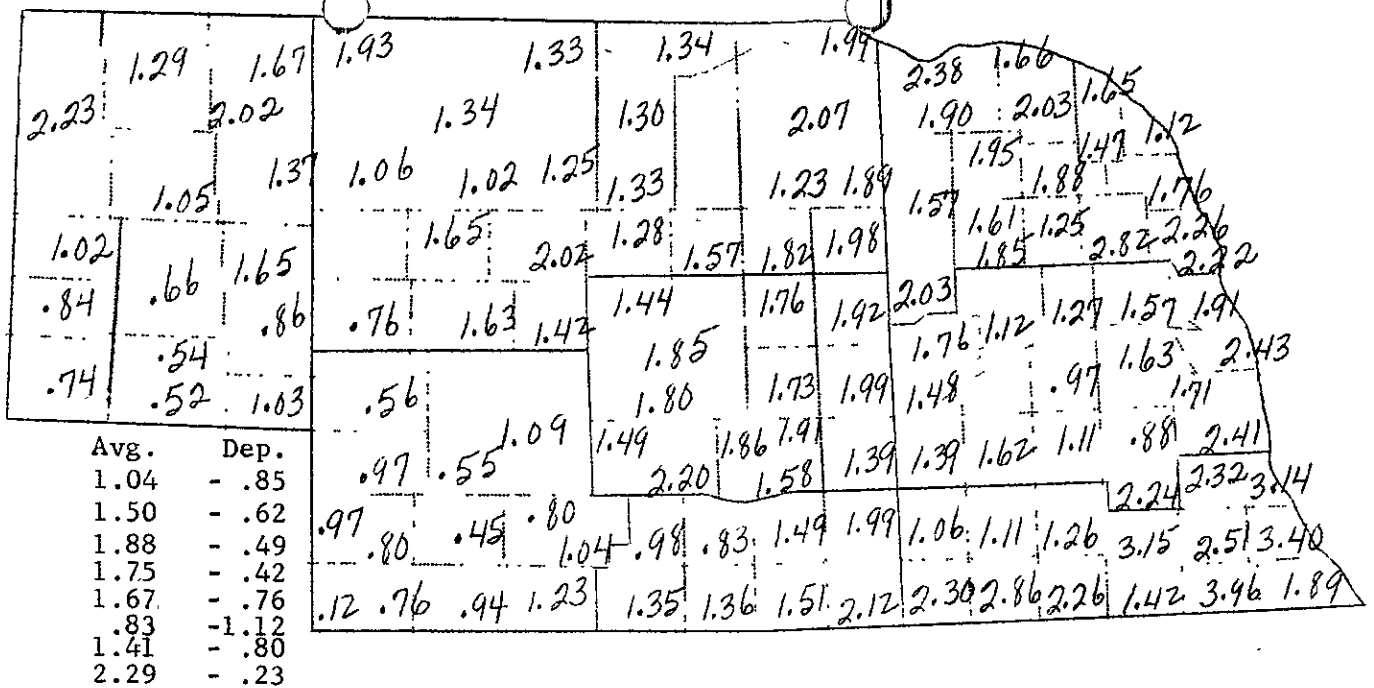 1.29 1.67 1.93 1.33 1.34 1.99 2.38 1.66
2.23 2.02 1.34 1.30 2.07 1.90 2.03 1.65
1.05 1.37 1.06 1.02 1.25 1.33 1.23 1.89 1.57 1.95 1.88 1.47 1.12
1.76
1.02 .66 1.65 1.65 2.02 1.28 1.57 1.82 1.98 1.61 1.25 2.26
1.85 2.82 2.22
.84 .86 .76 1.63 1.42 1.44 1.76 1.92 2.03 1.76 1.12 1.27 1.57 1.91
.54 1.85 1.63 2.43
.74 .52 1.03 .56 1.80 1.73 1.99 1.48 .97 1.71
1.09 1.49 1.86 1.91 1.39 1.39 1.62 1.11 .88 2.41
.97 .55 2.20 1.58 2.24 2.32 3.14
.97 .80 .45 .80 1.04 .98 .83 1.49 1.99 1.06 1.11 1.26 3.15 2.51 3.40
.12 .76 .94 1.23 1.35 1.36 1.51 2.12 2.30 2.86 2.26 1.42 3.96 1.89
Avg. Dep.
1.04 - .85
1.50 - .62
1.88 - .49
1.75 - .42
1.67 - .76
.83 -1.12
1.41 - .80
2.29 - .23